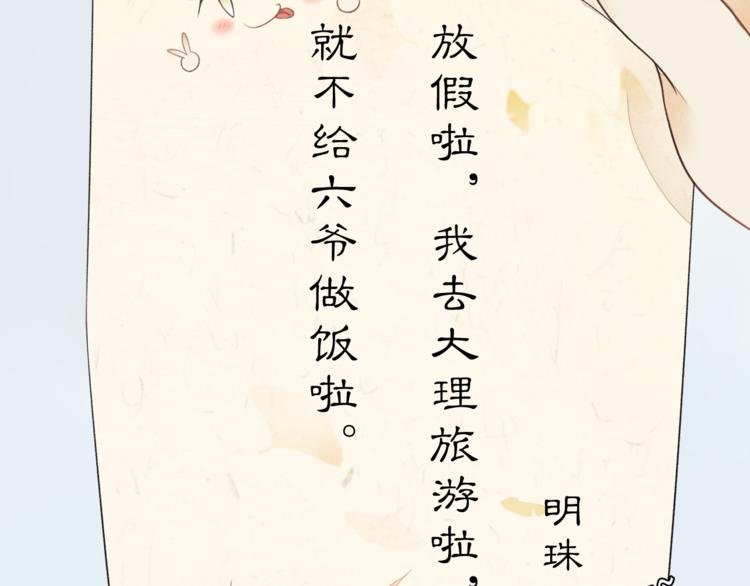 明珠
放假啦，我去大理旅游啦，
就不给六爷做饭啦。